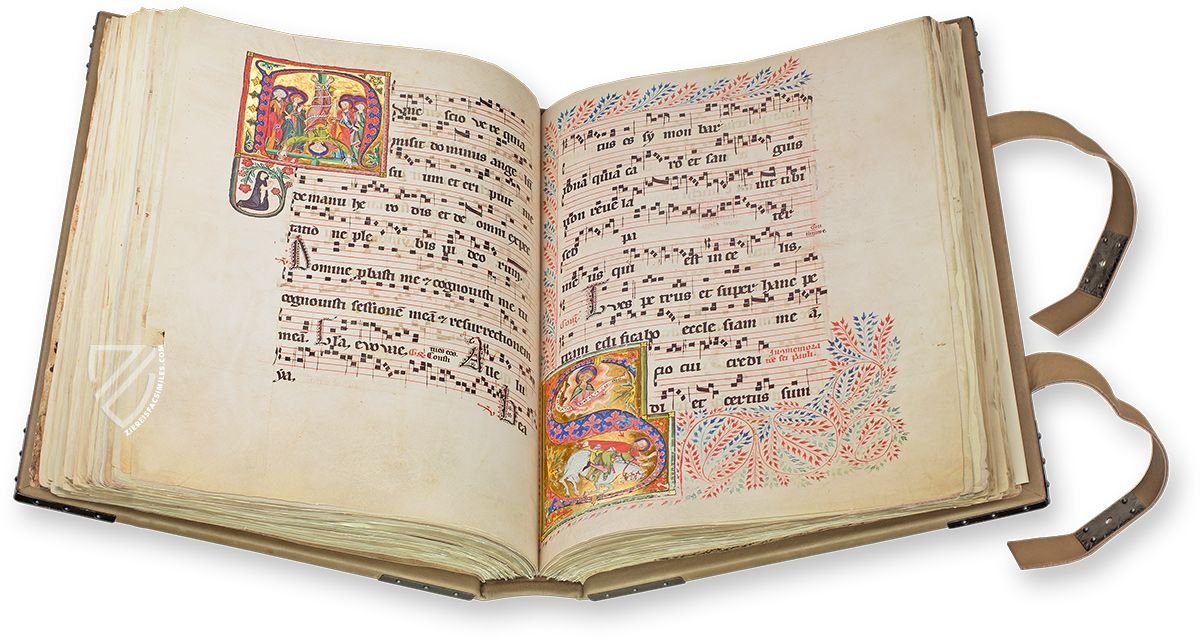 unc scio vere quia
misit dominus ange lū
su um et eri puit me
de manu he ro dis et de omni expec
tatio ne ple bis iu deo rum.
Domine pbasti me & cognouisti me tu
cognouisti sessionē meā & resurrectionem
meā. Gla, evovae, Aue, lu
ya.
Bea
tus es sy mon bar
iona quia ca ro et san guis
non reue la uit tibi
pa ter
meus qui est in ce lis,
Tu es pe trus et super hanc pe
tram edi ficabo eccle siam me ā,
In memoria
sci pauli.
Scio cui credi
di et certus sum
ZIEREISFACSIMILES.COM